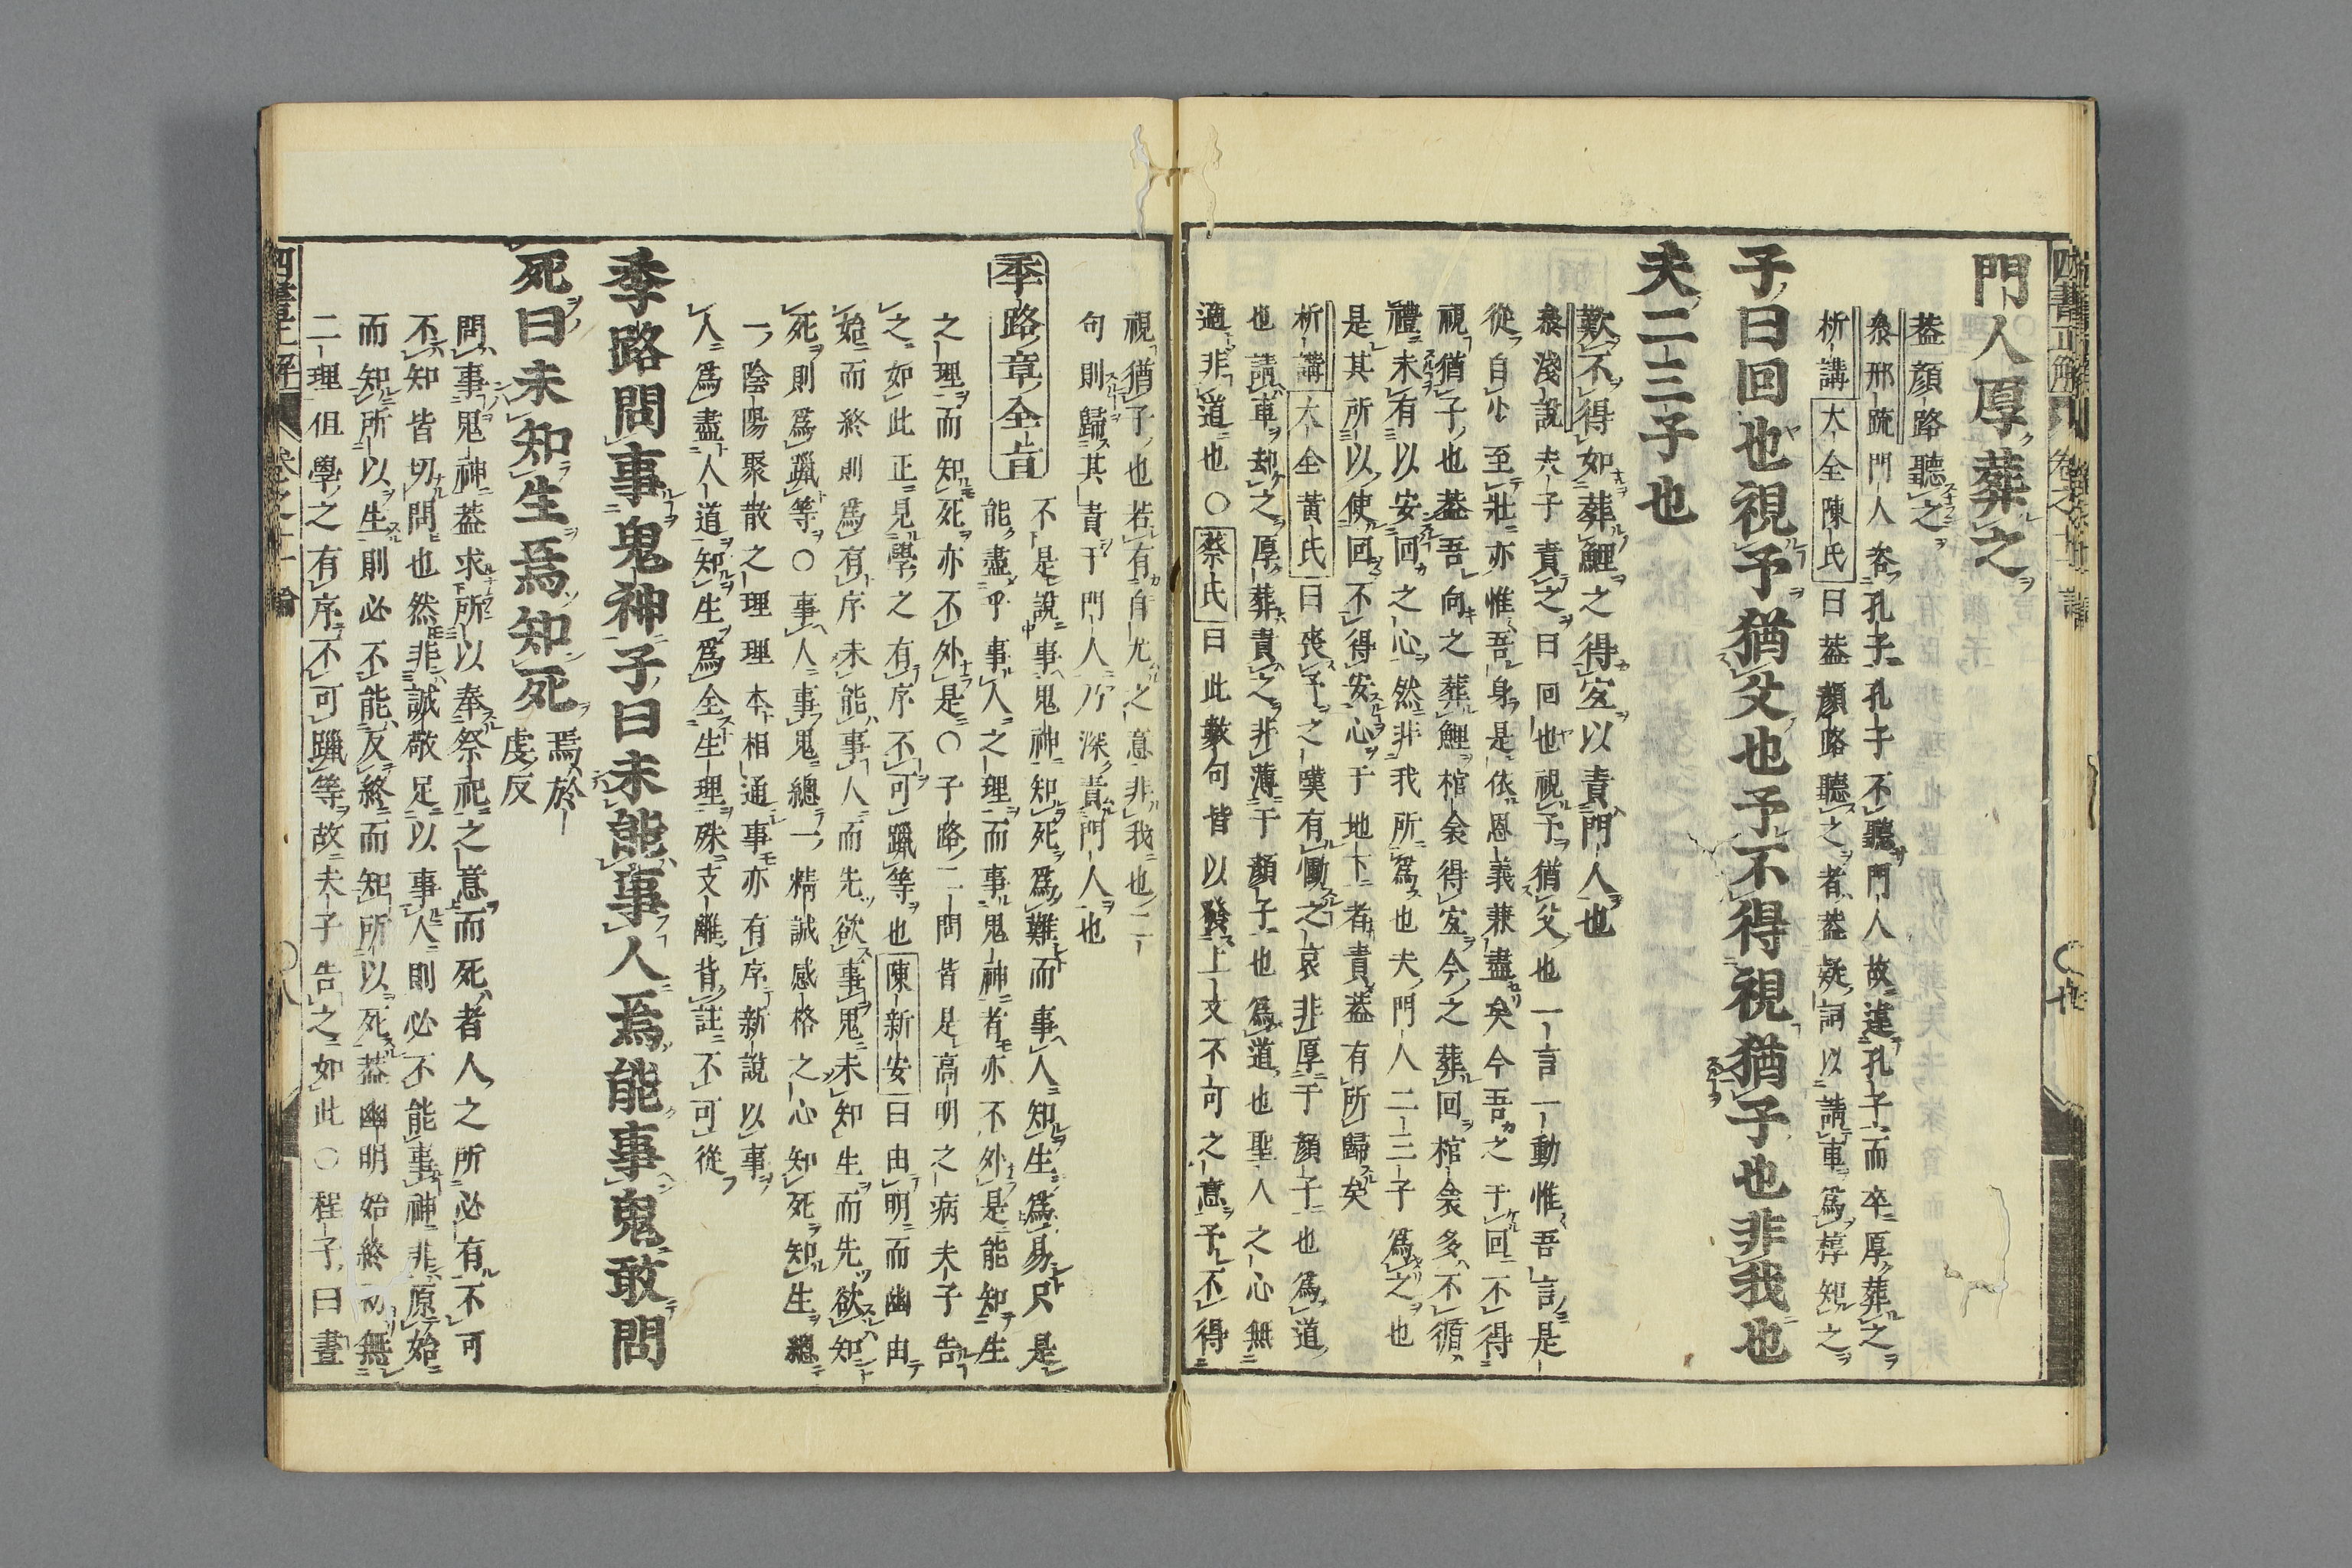 門人厚葬之
葢顔路聽之
叅邢疏門人咎孔子孔子不聽門人故違孔子而卒厚葬之
析講大全陳氏曰葢顔路聽之者葢疑詞以請車爲椁知之
子曰回也視予猶父也予不得視猶子也非我也
夫二三子也
歎不得如葬鯉之得宜以責門人也
叅淺說夫子責之曰回也視予猶父也一言一動惟吾言是
從自少至壯亦惟吾身是依恩義兼盡矣今吾之于回不得
視猶子也葢吾向之葬鯉棺矣得宜今之葬回棺矣多不循
禮未有以安回之心然非我所爲也夫門人二三子爲之也
是其所以使回不得安心于地下者責葢有所歸矣
析講大全黃氏曰喪予之嘆有慟之哀非厚于顔子也爲道
也請車却之厚葬責之非薄于顔子也爲道也聖人之心無
適非道也○蔡氏曰此數句皆以發上文不可之意予不得
視猶子也若有自尤之意非我也二
句則歸其責于門人乃深責門人也
季路章全旨
不是說事鬼神知死爲難而事人知生爲易只是
能盡乎事人之理而事鬼神者亦不外是能知生
之理而知死亦不外是○子路二問皆是高明之病夫子告
之如此正見學之有序不可躐等也陳新安曰由明而幽由
始而終則爲有序未能事人而先欲事鬼未知生而先欲知
死則爲躐等○事人事鬼總一精誠感格之心知死知生總
一陰陽聚散之理理本相通事亦有序新說以事
人爲盡人道知生爲全生理殊支離背註不可從
季路問事鬼神子曰未能事人焉能事鬼敢問
死曰未知生焉知死
焉於
虔反
問事鬼神葢求所以奉祭祀之意而死者人之所必有不可
不知皆切問也然非誠敬足以事人則必不能事神非原始
而知所以生則必不能反終而知所以死葢幽明始終初無
二理但學之有序不可躐等故夫子告之如此○程子曰晝